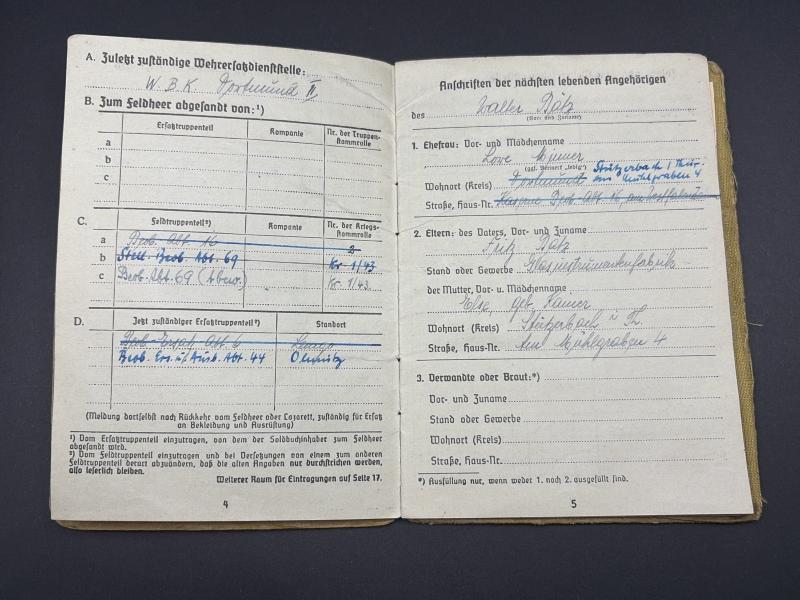 A. Zuletzt zuständige Wehrersatzdienststelle:
W.B.K. Dortmund II
B. Zum Feldheer abgesandt von:¹)
Ersatztruppenteil Kompanie Nr. der Truppen-
stammrolle
a
b
c
C. Feldtruppenteil²) Kompanie Nr. der Kriegs-
stammrolle
a Beob. Abt. 16 2
b Stell. Beob. Abt. 69 Kr 1/43
c Beob. Abt. 69 Kr. 1/43.
D. Jetzt zuständiger Ersatztruppenteil²) Standort
Beob. Ersatz Abt. 6 Lemgo
Beob. Ers. u. Ausb. Abt. 44 Olmütz
(Meldung dortselbst nach Rückkehr vom Feldheer oder Lazarett, zuständig für Ersatz
an Bekleidung und Ausrüstung)
¹) Vom Ersatztruppenteil einzutragen, von dem der Soldbuchinhaber zum Feldheer
abgesandt wird.
²) Vom Feldtruppenteil einzutragen und bei Versetzungen von einem zum anderen
Feldtruppenteil derart abzuändern, daß die alten Angaben nur durchstrichen werden,
also leserlich bleiben.
Weiterer Raum für Eintragungen auf Seite 17.
4
Anschriften der nächsten lebenden Angehörigen
des Walter Bätz
(Vor- und Zuname)
1. Ehefrau: Vor- und Mädchenname
(ggf. Vermerk „ledig“)
Stützerbach / Thür.
Wohnort (Kreis) Dortmund am Mühlgraben 4
Straße, Haus-Nr. Kaserne Beob. Abt. 16
2. Eltern: des Vaters, Vor- und Zuname
Fritz Bätz
Stand oder Gewerbe Glasinstrumentenfabrik
der Mutter, Vor- u. Mädchenname
Else, geb.
Wohnort (Kreis) Stützerbach i Th.
Straße, Haus-Nr. Am Mühlgraben 4
3. Verwandte oder Braut:*)
Vor- und Zuname
Stand oder Gewerbe
Wohnort (Kreis)
Straße, Haus-Nr.
*) Ausfüllung nur, wenn weder 1. noch 2. ausgefüllt sind.
5